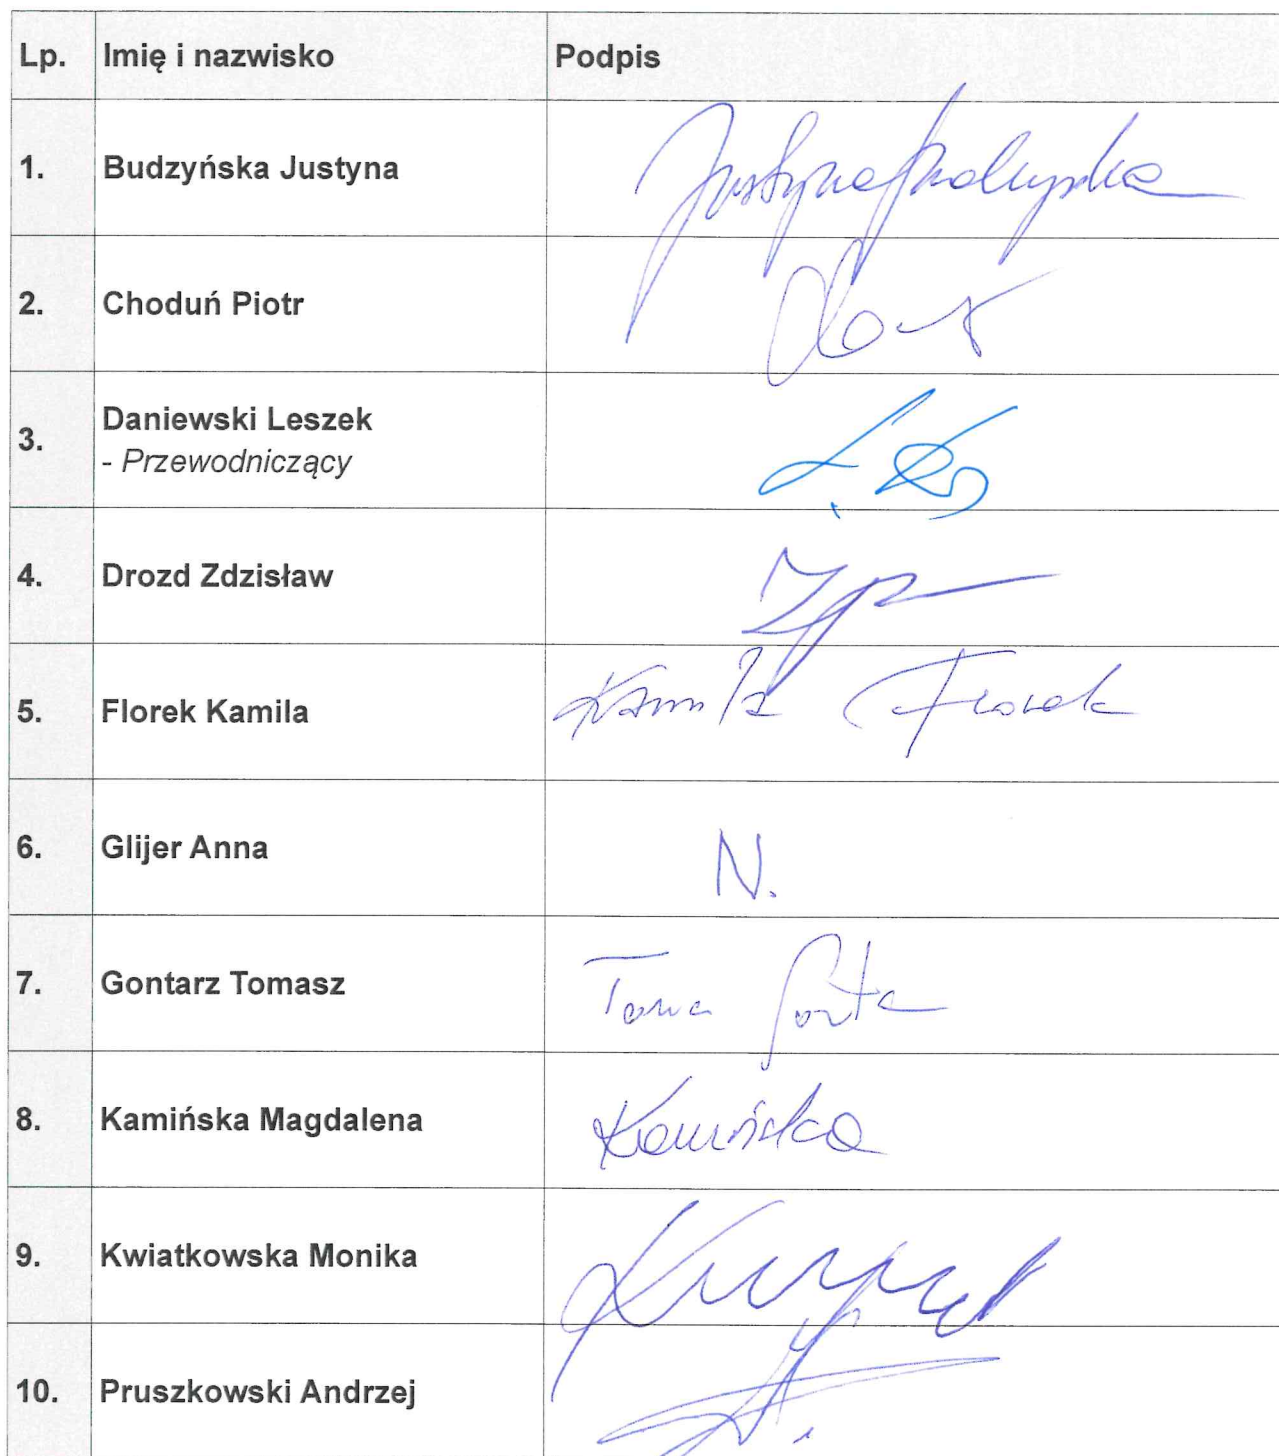 Lp. Imię i nazwisko Podpis
1. Budzyńska Justyna
2. Choduń Piotr
3. Daniewski Leszek
- Przewodniczący
4. Drozd Zdzisław
5. Florek Kamila Kamila Florek
6. Glijer Anna N.
7. Gontarz Tomasz
8. Kamińska Magdalena Kamińska
9. Kwiatkowska Monika
10. Pruszkowski Andrzej